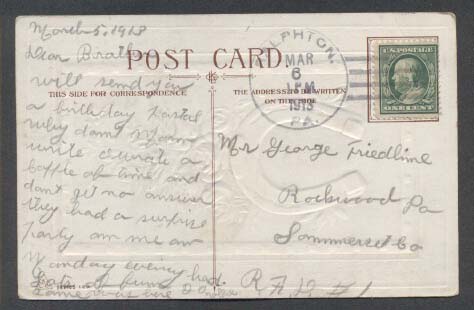 March 5, 1913
Dear Broth
will send you
a birthday Postal
why dont
write
of time and
dont get no answer
they had a surprise
Party on me
Monday evening had
lots of fun
POST CARD
THIS SIDE FOR CORRESPONDENCE
THE ADDRESS TO BE WRITTEN
ON THIS SIDE
RALPHTON,
MAR
6
PM
1913
PA.
U.S. POSTAGE
ONE CENT
Mr George Friedline
Rockwood Pa
Sommerset Co
R.F.D. # 1